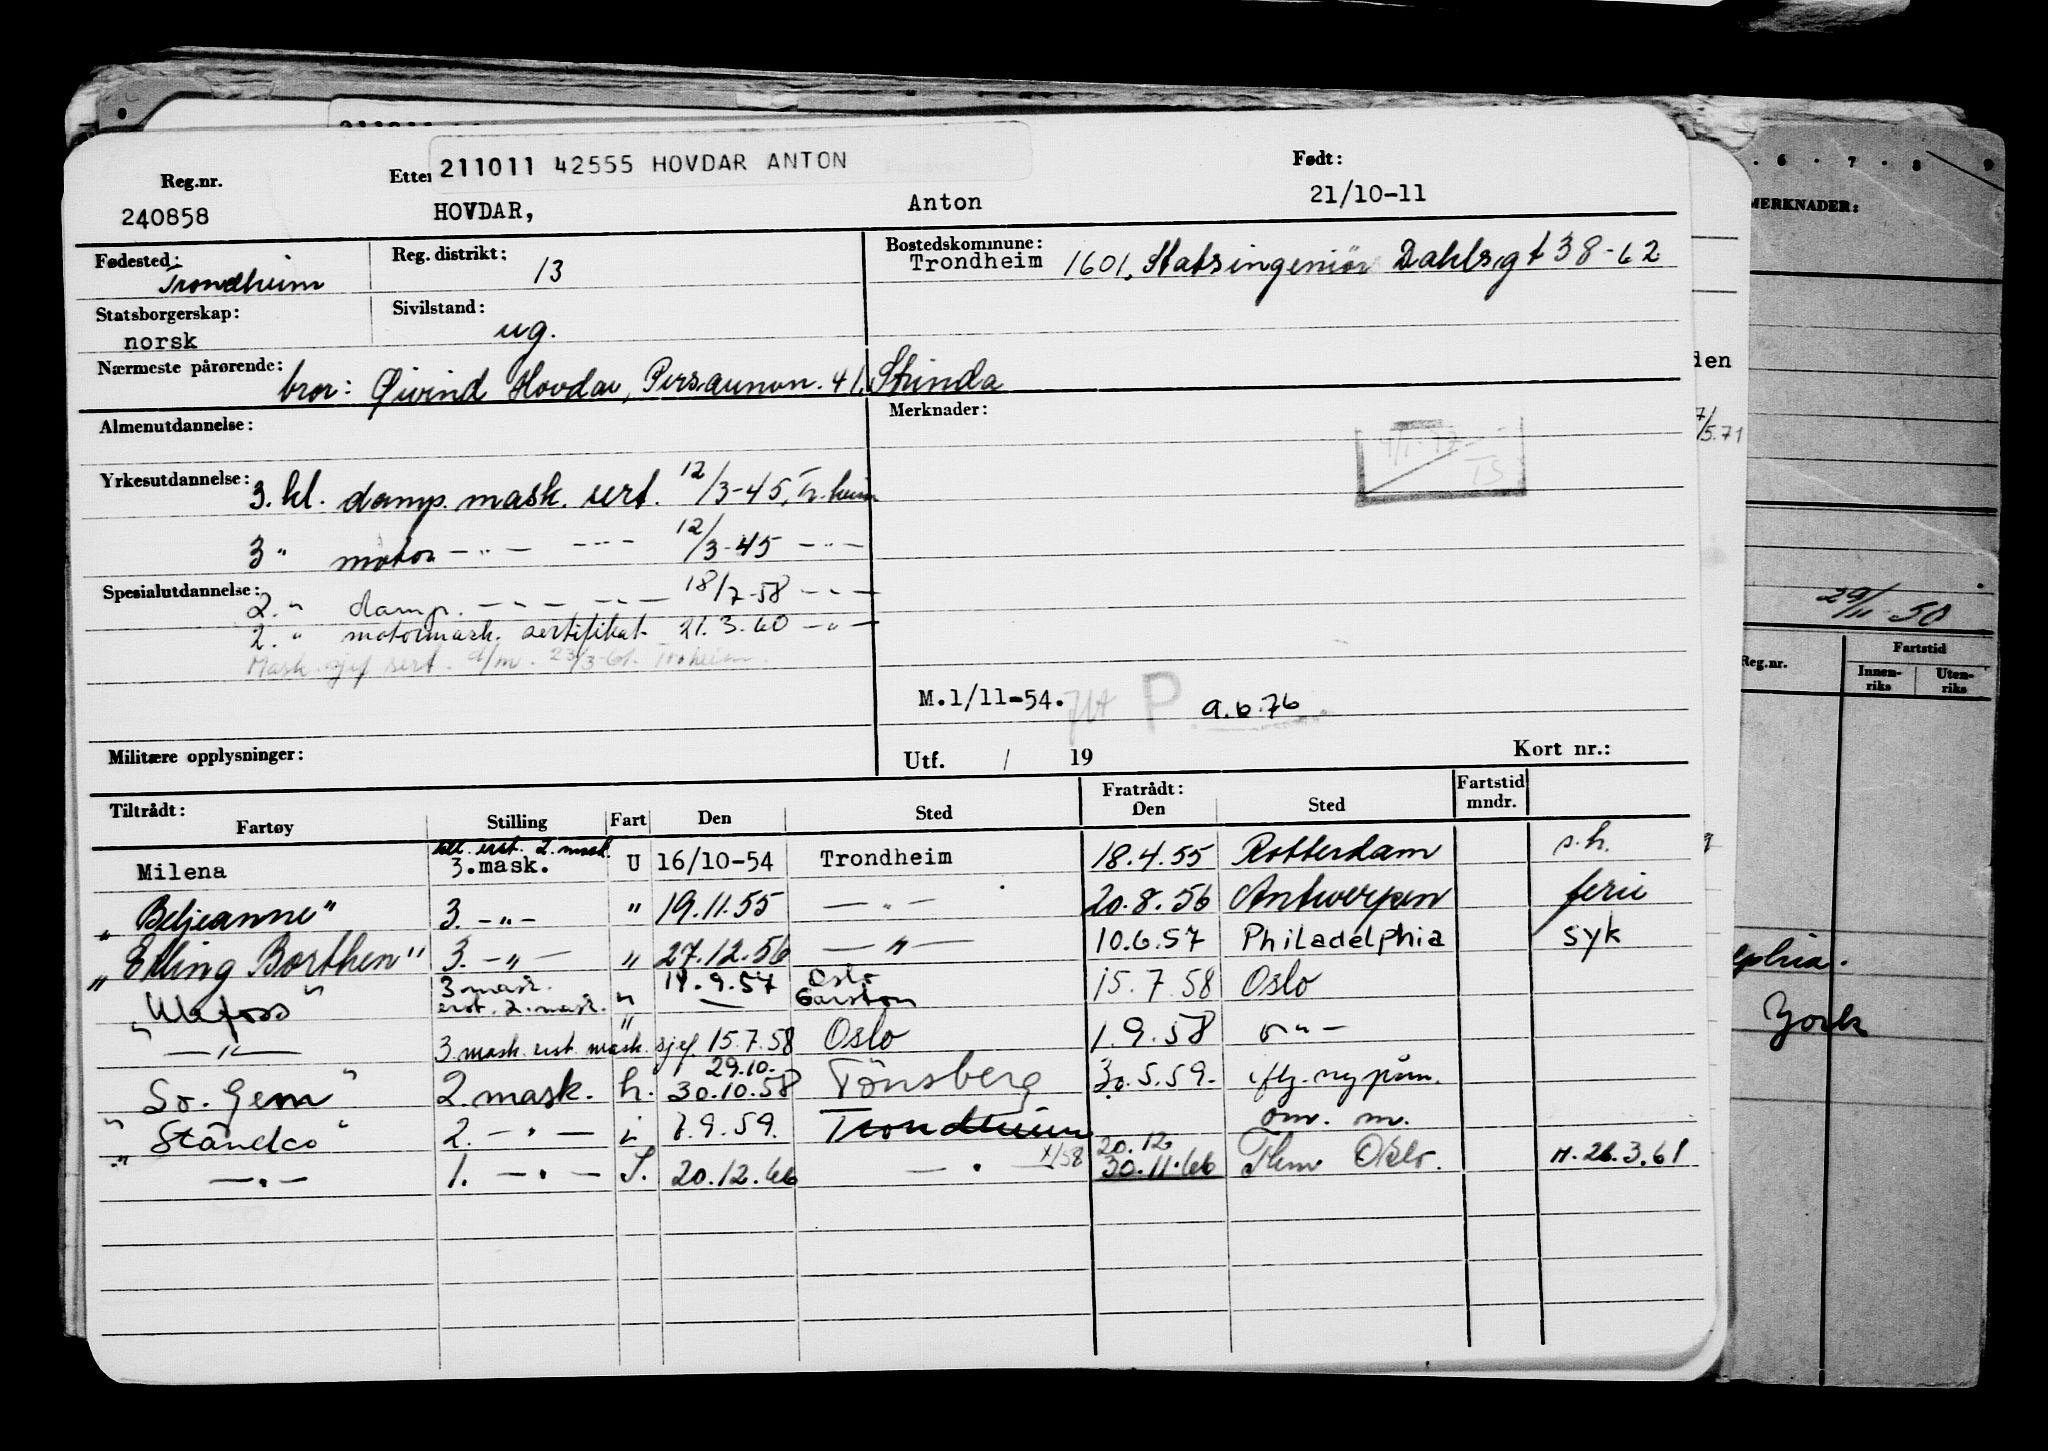 211011 42555 HOVDAR ANTON
Reg.nr. Etter Født:
240858 HOVDAR, Anton 21/10-11
Fødested: Trondheim Reg. distrikt: 13 Bostedskommune: Trondheim 1601, Statsingeniør Dahlsgt 38-62
Statsborgerskap: norsk Sivilstand: ug.
Nærmeste pårørende: bror: Øivind Hovdar, Persaunvn. 41, Strinda
Almenutdannelse: Merknader:
Yrkesutdannelse: 3. kl. damp. mask. sert. 12/3-45, Tr.heim
3 " motor - " - - " - 12/3-45 - " -
Spesialutdannelse: 2. " damp. - " - - " - 18/7-58 - " -
2. " motormask. sertifikat 21.3.60 - " -
Mask.sjef sert. d/m. 23/3-61. Tr.heim.
M.1/11-54. P. 9.6.76
Militære opplysninger: Utf. / 19 Kort nr.:
Tiltrådt: Fratrådt: Fartstid
Fartøy Stilling Fart Den Sted Den Sted mndr.
erst. 2. mask.
Milena 3.mask. U 16/10-54 Trondheim 18.4.55 Rotterdam s.h.
"Beljeanne" 3. - " - " 19.11.55 - " - 20.8.56 Antwerpen ferie
"Erling Borthen" 3. - " - " 27.12.56 - " - 10.6.57 Philadelphia syk
"Ulefoss" 3 mask. " 19.9.57 Oslo 15.7.58 Oslo
erst. 2. mask. " — Garston
- " - 3 mask. erst. mask. sjef. 15.7.58 Oslo 1.9.58 - " -
29.10.
"Sr. Gem" 2. mask. h. 30.10.58 Tönsberg 30.5.59. iflg. ny påm.
"Ståndco" 2. - " - i 7.9.59. Trondheim omr. m.
20.12
- " - 1. - " - S. 20.12.66 - " - X/58 30.11.66 Thm Oslo. M. 26.3.61
6 7 8 9
MERKNADER:
den
7/5.71
29/11-50
Reg.nr. Fartstid
Innen-riks Uten-riks
elphia.
York